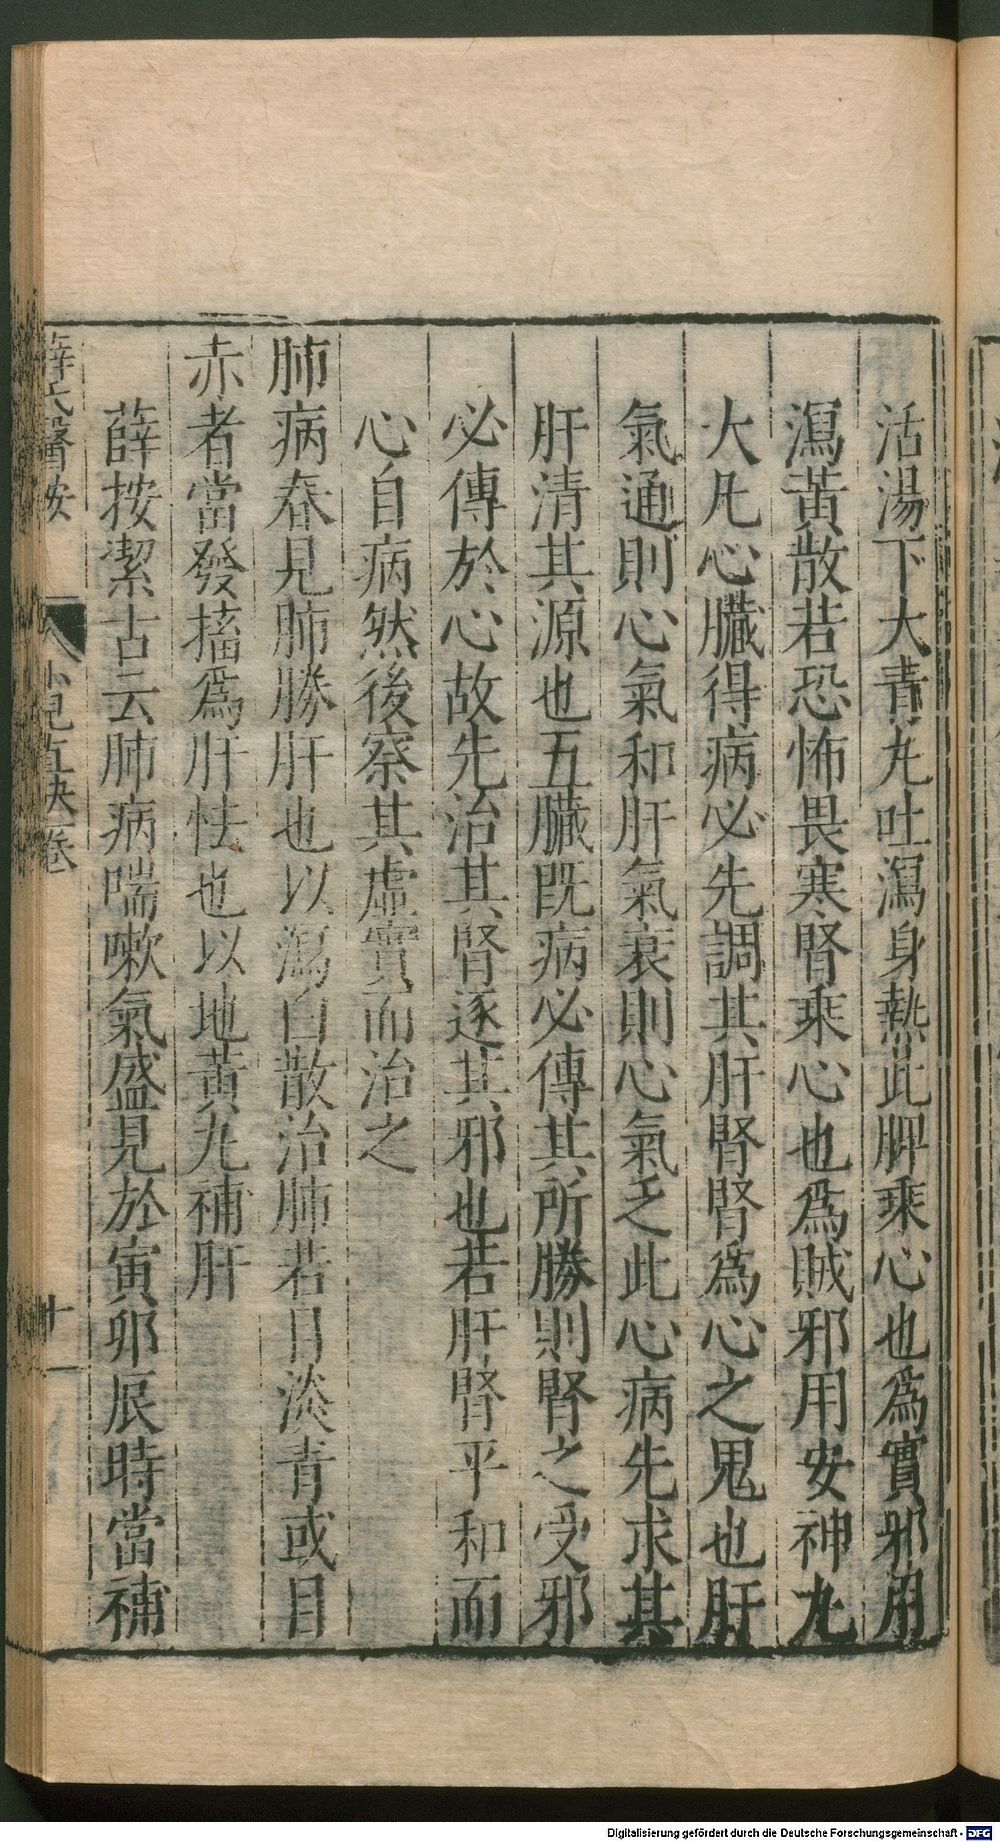 活湯下大青丸吐瀉身熱此脾乘心也爲實邪用
瀉黃散若恐怖畏寒腎乘心也爲賊邪用安神丸
大凡心臟得病必先調其肝腎腎爲心之鬼也肝
氣通則心氣和肝氣衰則心氣乏此心病先求其
肝清其源也五臟既病必傳其所勝則腎之受邪
必傳於心故先治其腎逐其邪也若肝腎平和而
心自病然後察其虛實而治之
肺病春見肺勝肝也以瀉白散治肺若目淡青或目
赤者當發搐爲肝怯也以地黃丸補肝
薛按潔古云肺病喘嗽氣盛見於寅卯辰時當補
薛氏醫按 小兒直決卷 十
Digitalisierung gefördert durch die Deutsche Forschungsgemeinschaft - DFG